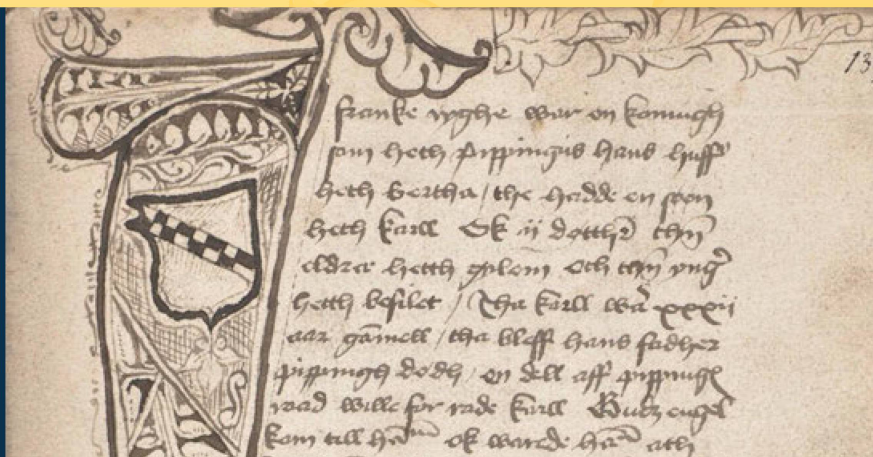 13
franke righe war en konungh
som heth pippingis hans husf
heth bertha / the hadde en son
heth karll Ok ij dotthr thn
eldzer hetth gylem och thn yngr
hetth besilet / Tha karll war xxxij
aar gamell / tha bleff hans fadher
pippingh dodh / en dell aff pipping
raad wille for rade karll Gudz engel
kom till hanum ok warede han ath